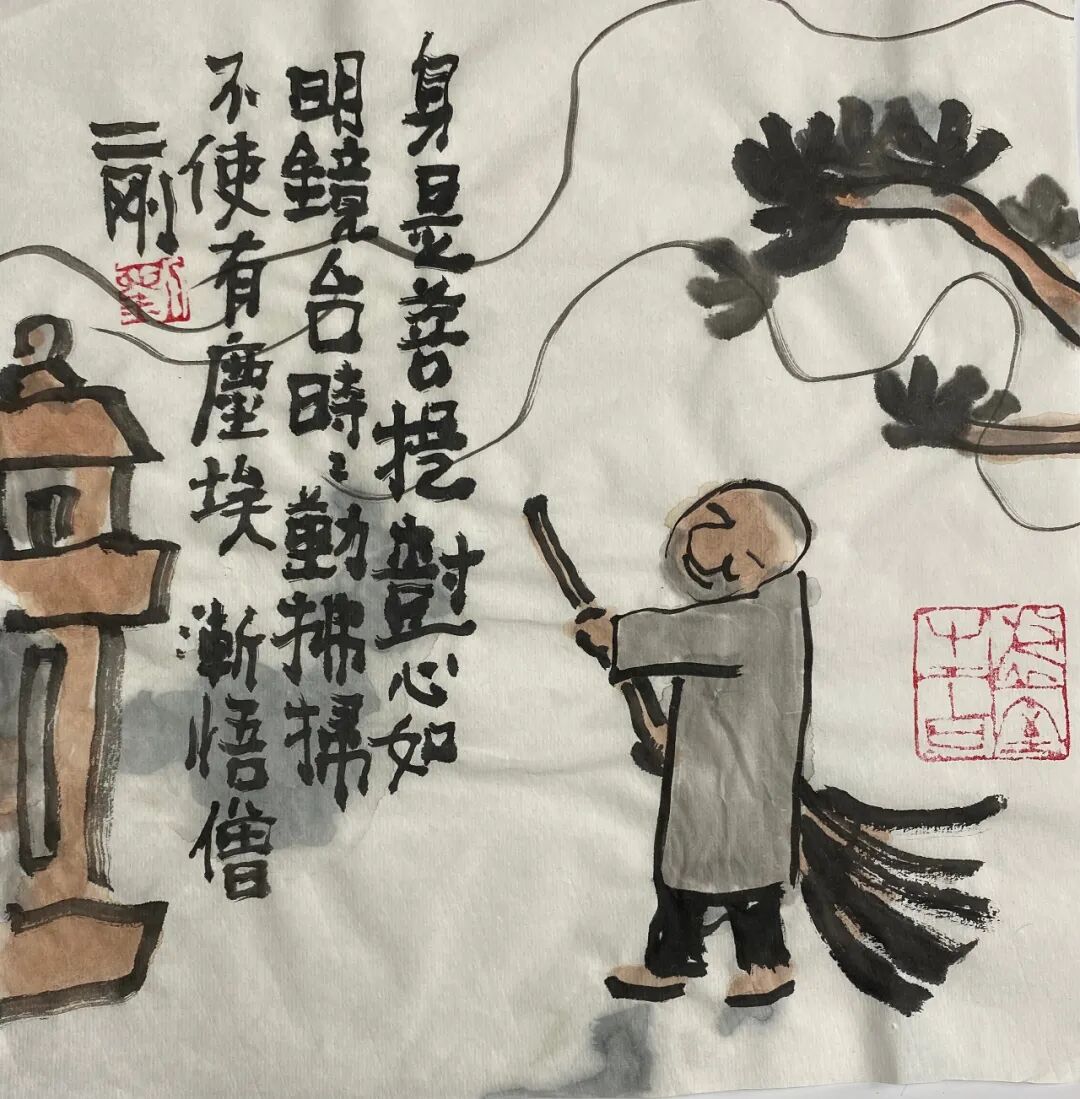 身是菩提樹心如
明鏡台時〻勤拂掃
不使有塵埃 漸悟僧
二剛